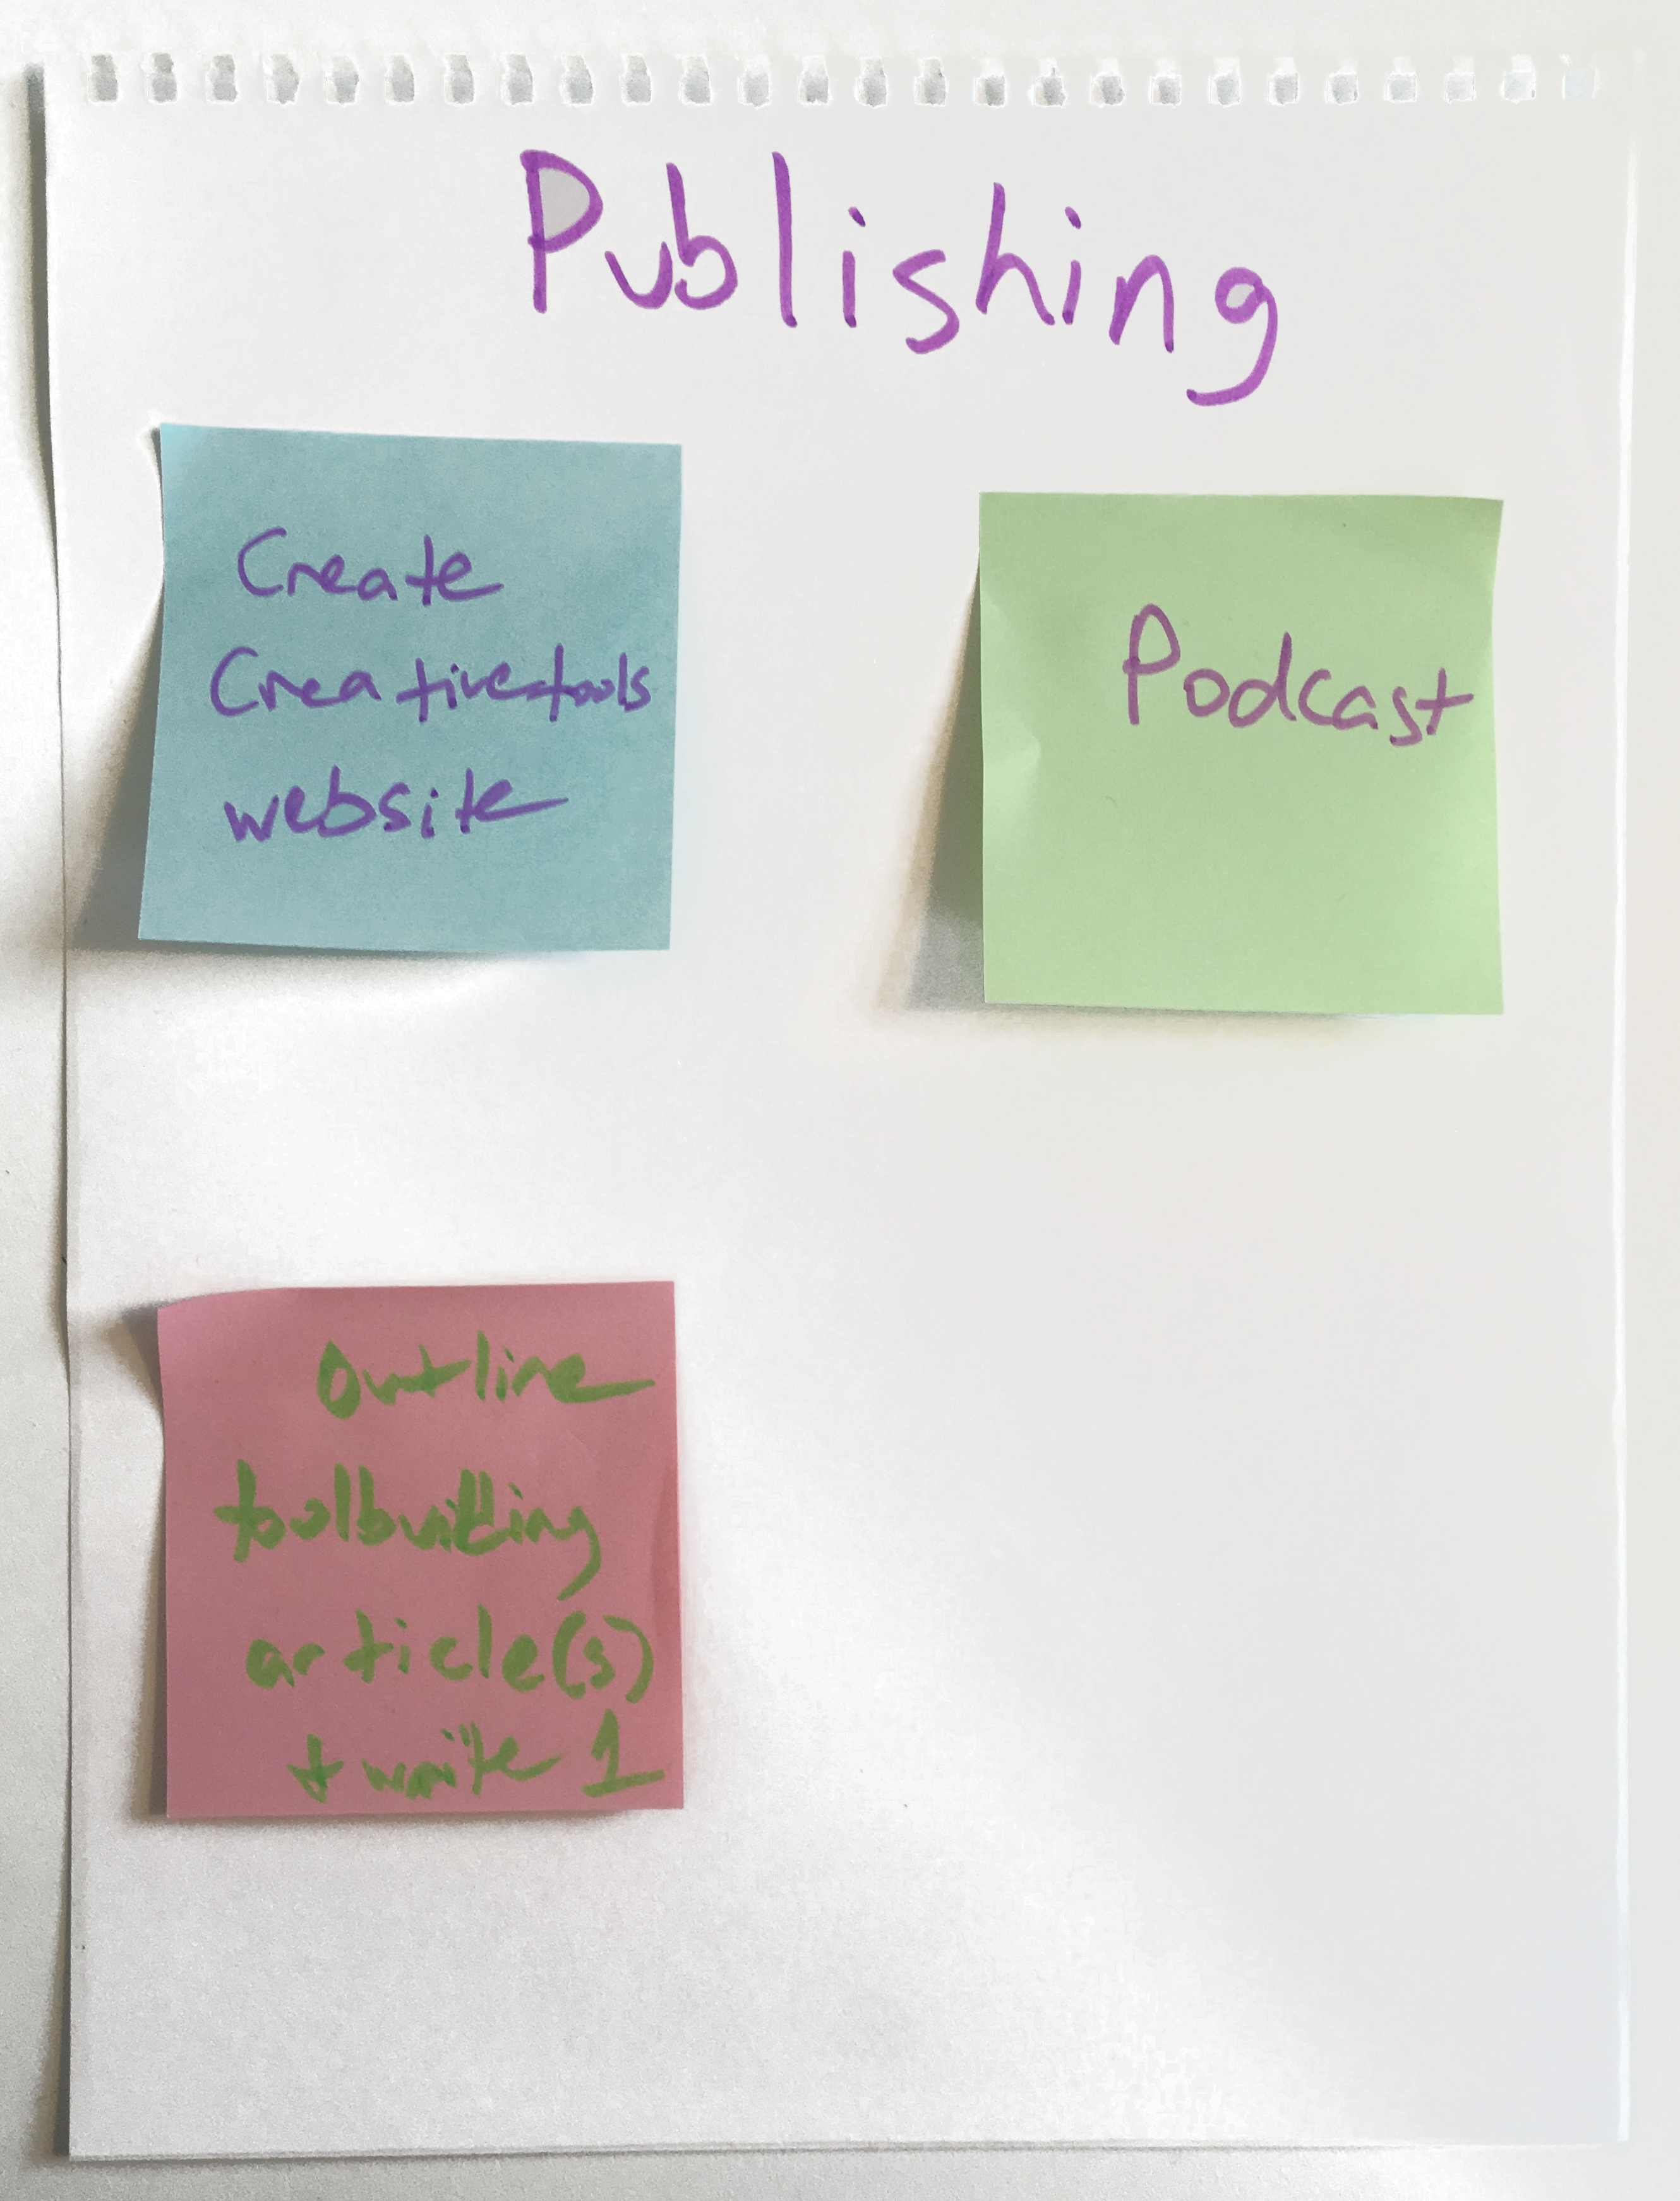 Publishing
Create
Creativetools
website
Podcast
Outline
toolbuilding
article(s)
+ write 1